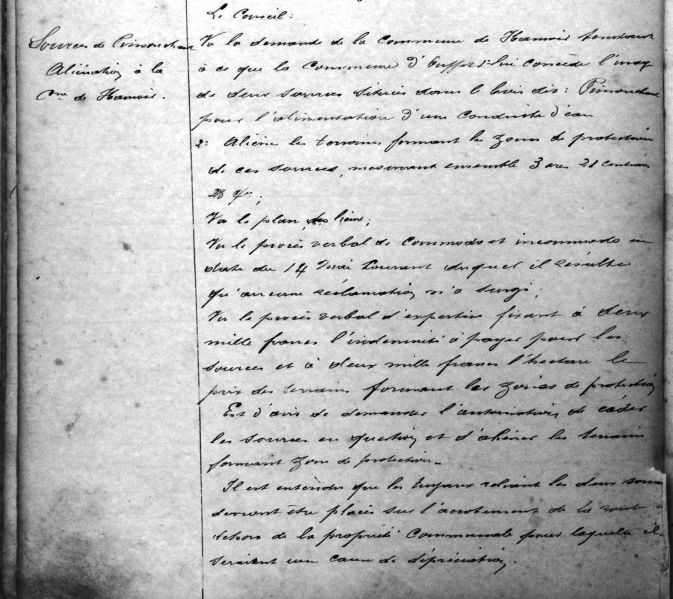 Le Conseil:
Sources de Pimonchaux
Aliénation à la
Cne de Hamoir.
Vu la demande de la Commune de Hamoir tendant
à ce que la Commune d' concède l'usage
de deux sources situées dans le bois dit:
pour l'alimentation d'une conduite d'eau
2: Aliène les terrains formant la zone de protection
de ces sources, mesurant ensemble 3 ares 21 centiares
28 ;
Vu le plan des lieux;
Vu le procès verbal de Commodo et incommodo en
date du 14 courant duquel il résulte
qu'aucune réclamation n'a surgi;
Vu le procès verbal d'expertise fixant à deux
mille francs l'indemnité à payer pour les
sources et à deux mille francs l'hectare le
prix des terrains formant les zones de protection
Est d'avis de demander l'autorisation de céder
les sources en question et d'aliéner les terrains
formant zone de protection.
Il est entendu que les tuyaux reliant les deux sources
devront être placés sur l'accotement de la route
dehors de la propriété Communale pour laquelle ils
seraient une cause de dépréciation.